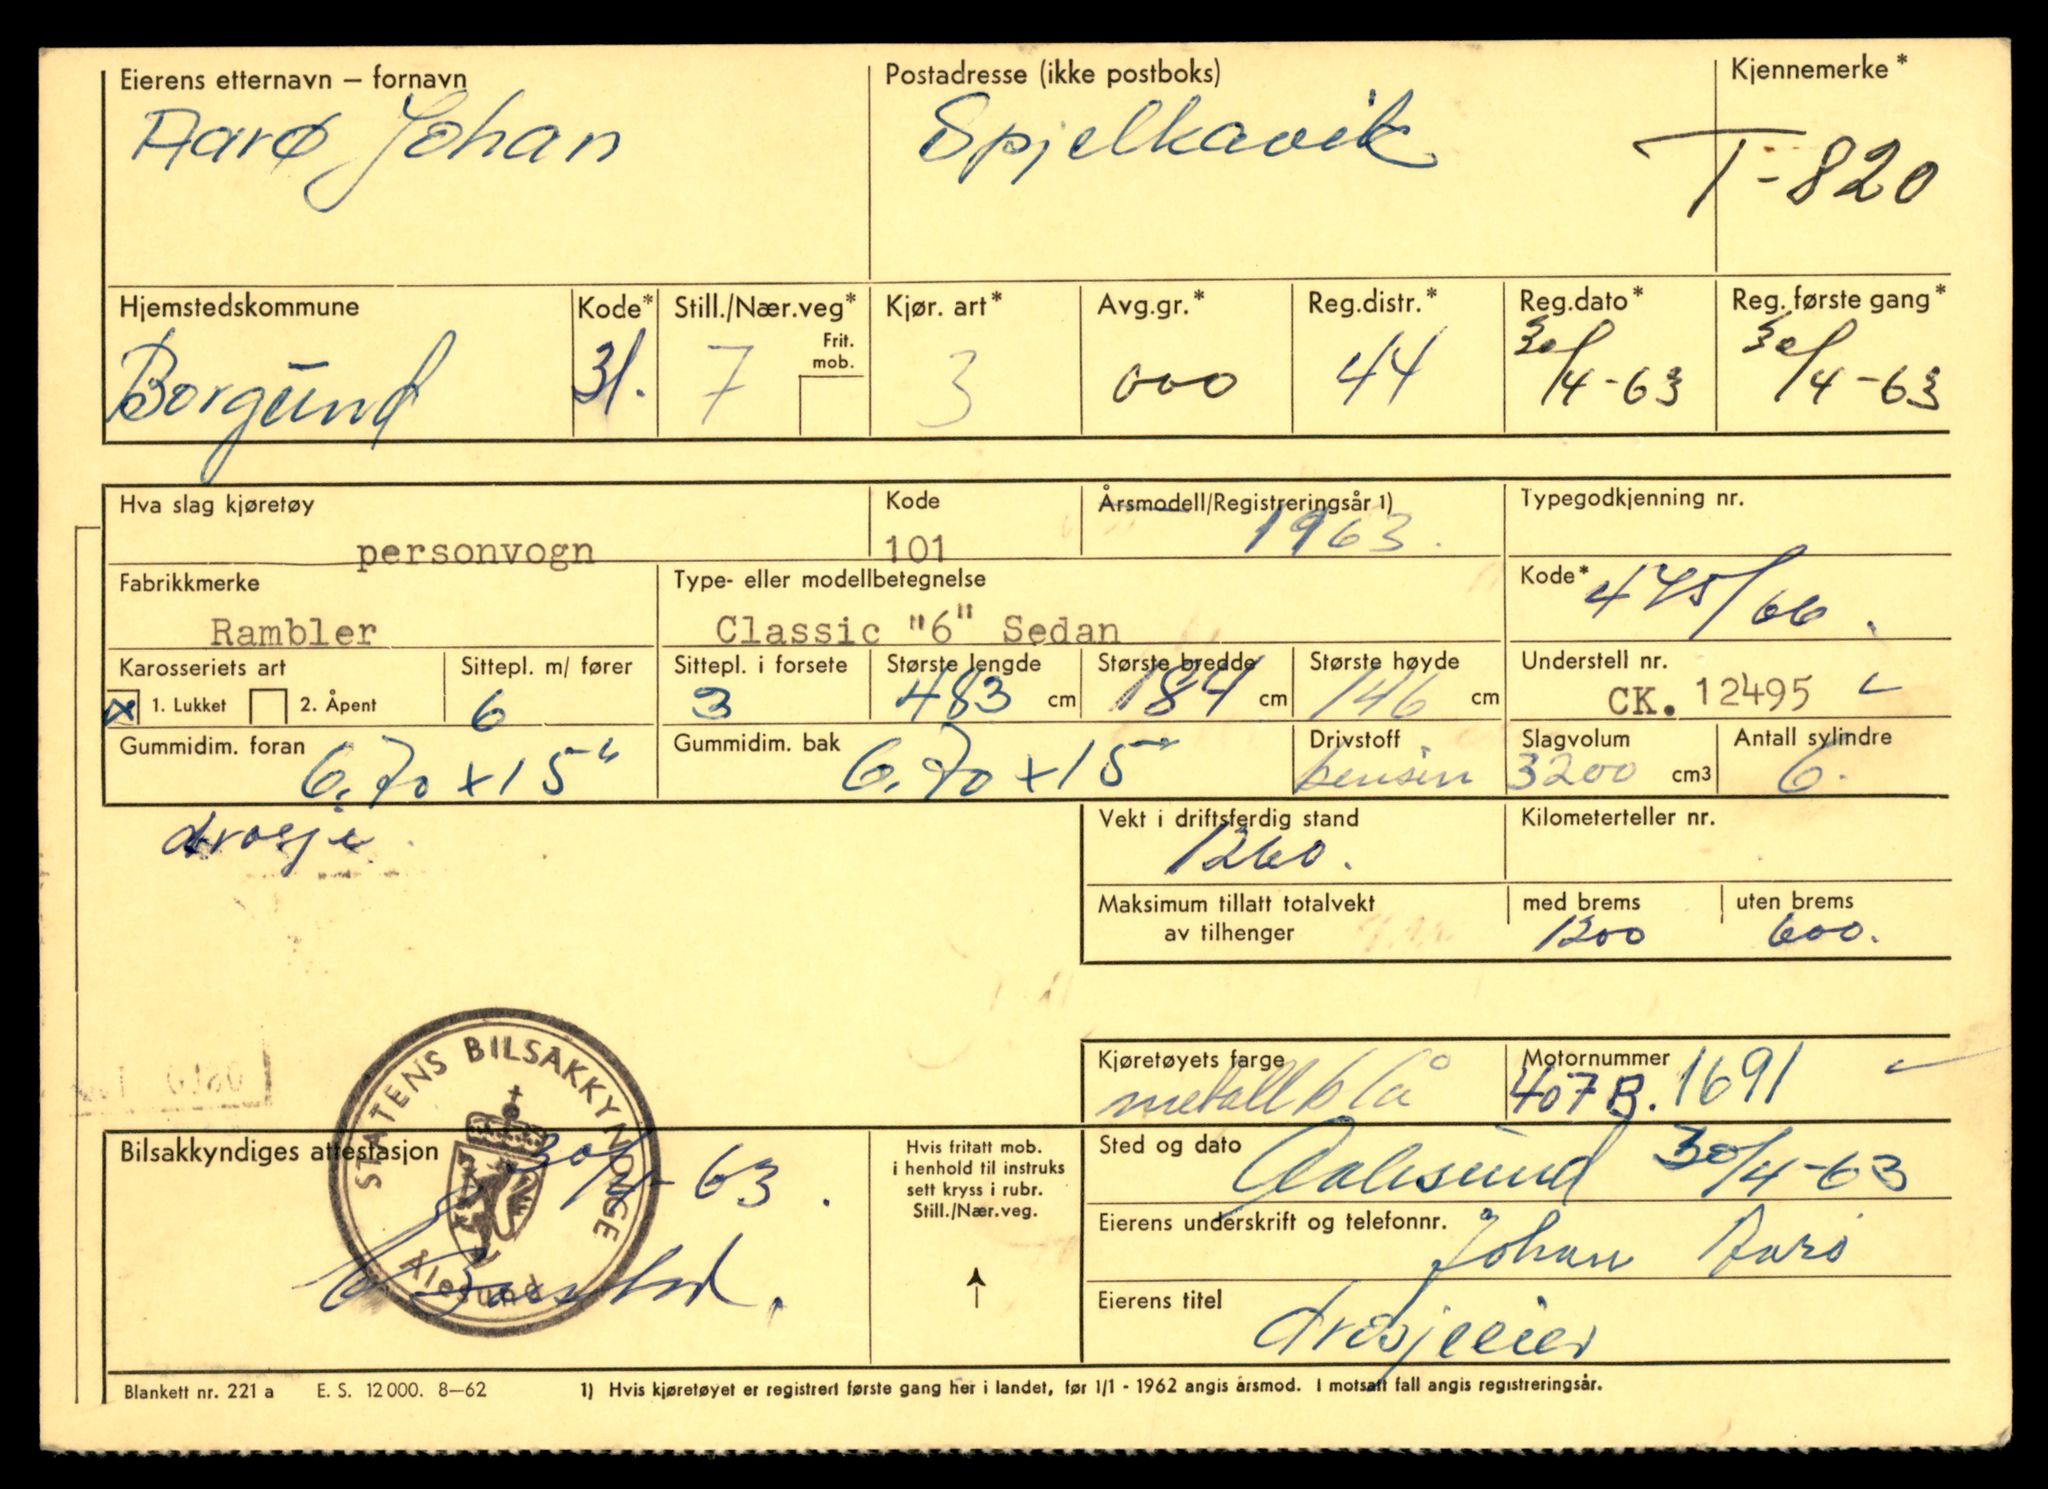 Eierens etternavn – fornavn Postadresse (ikke postboks) Kjennemerke*
Aarø Johan Spjelkavik T-820
Hjemstedskommune Kode* Still./Nær.veg* Kjør. art* Avg.gr.* Reg.distr.* Reg.dato* Reg. første gang*
Frit. mob.
Borgund 31. 7 3 000 44 30/4-63 30/4-63
Hva slag kjøretøy Kode Årsmodell/Registreringsår 1) Typegodkjenning nr.
personvogn 101 1963.
Fabrikkmerke Type- eller modellbetegnelse Kode* 475/66.
Rambler Classic "6" Sedan
Karosseriets art Sittepl. m/ fører Sittepl. i forsete Største lengde Største bredde Største høyde Understell nr.
x 1. Lukket 2. Åpent 6 3 483 cm 184 cm 146 cm CK. 12495
Gummidim. foran Gummidim. bak Drivstoff Slagvolum Antall sylindre
6.70 x 15" 6.70 x 15" bensin 3200 cm3 6.
drosje.
Vekt i driftsferdig stand Kilometerteller nr.
1260.
Maksimum tillatt totalvekt av tilhenger med brems uten brems
1200 600.
Kjøretøyets farge Motornummer
metallblå 407B. 1691
STATENS BILSAKKYNDIGE
Ålesund
Bilsakkyndiges attestasjon
30/4-63.
Hvis fritatt mob.
i henhold til instruks
sett kryss i rubr.
Still./Nær.veg.
Sted og dato
Aalesund 30/4-63
Eierens underskrift og telefonnr.
Johan Aarø
Eierens titel
drosjeeier
Blankett nr. 221 a E. S. 12000. 8–62 1) Hvis kjøretøyet er registrert første gang her i landet, før 1/1 - 1962 angis årsmod. I motsatt fall angis registreringsår.